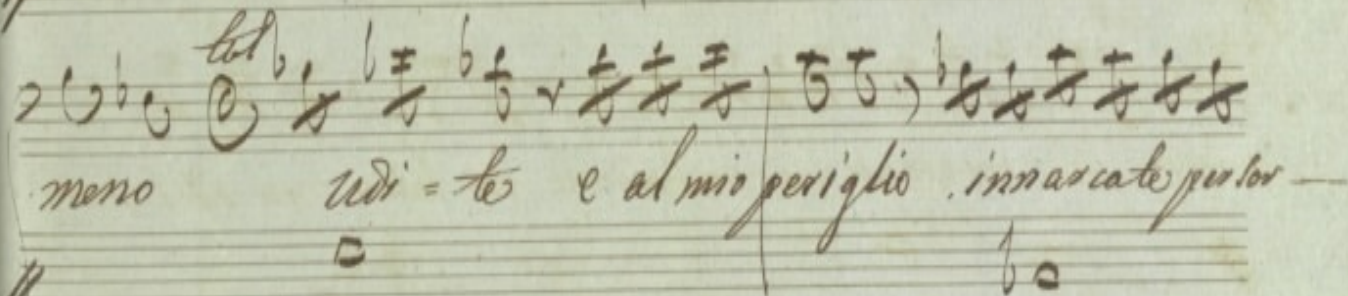 meno udi = te e al mio periglio innarcate per lor